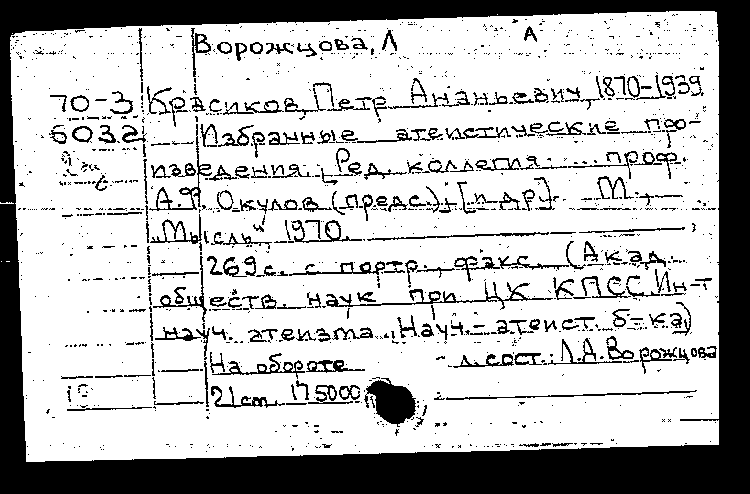 Ворожцова, Л А
70-3 Красиков, Петр Ананьевич, 1870-1939
6032 Избранные атеистические про-
изведения. [Ред. коллегия: ... проф.
А.Ф. Окулов (предс.) [и др]. М.,
"Мысль", 1970.
269 с. с портр., факс. (Акад.
обществ. наук при ЦК КПСС. Ин-т
науч. атеизма. Науч.-атеист. б-ка)
На обороте л. сост.: Л.А. Ворожцова
21 см. 175000